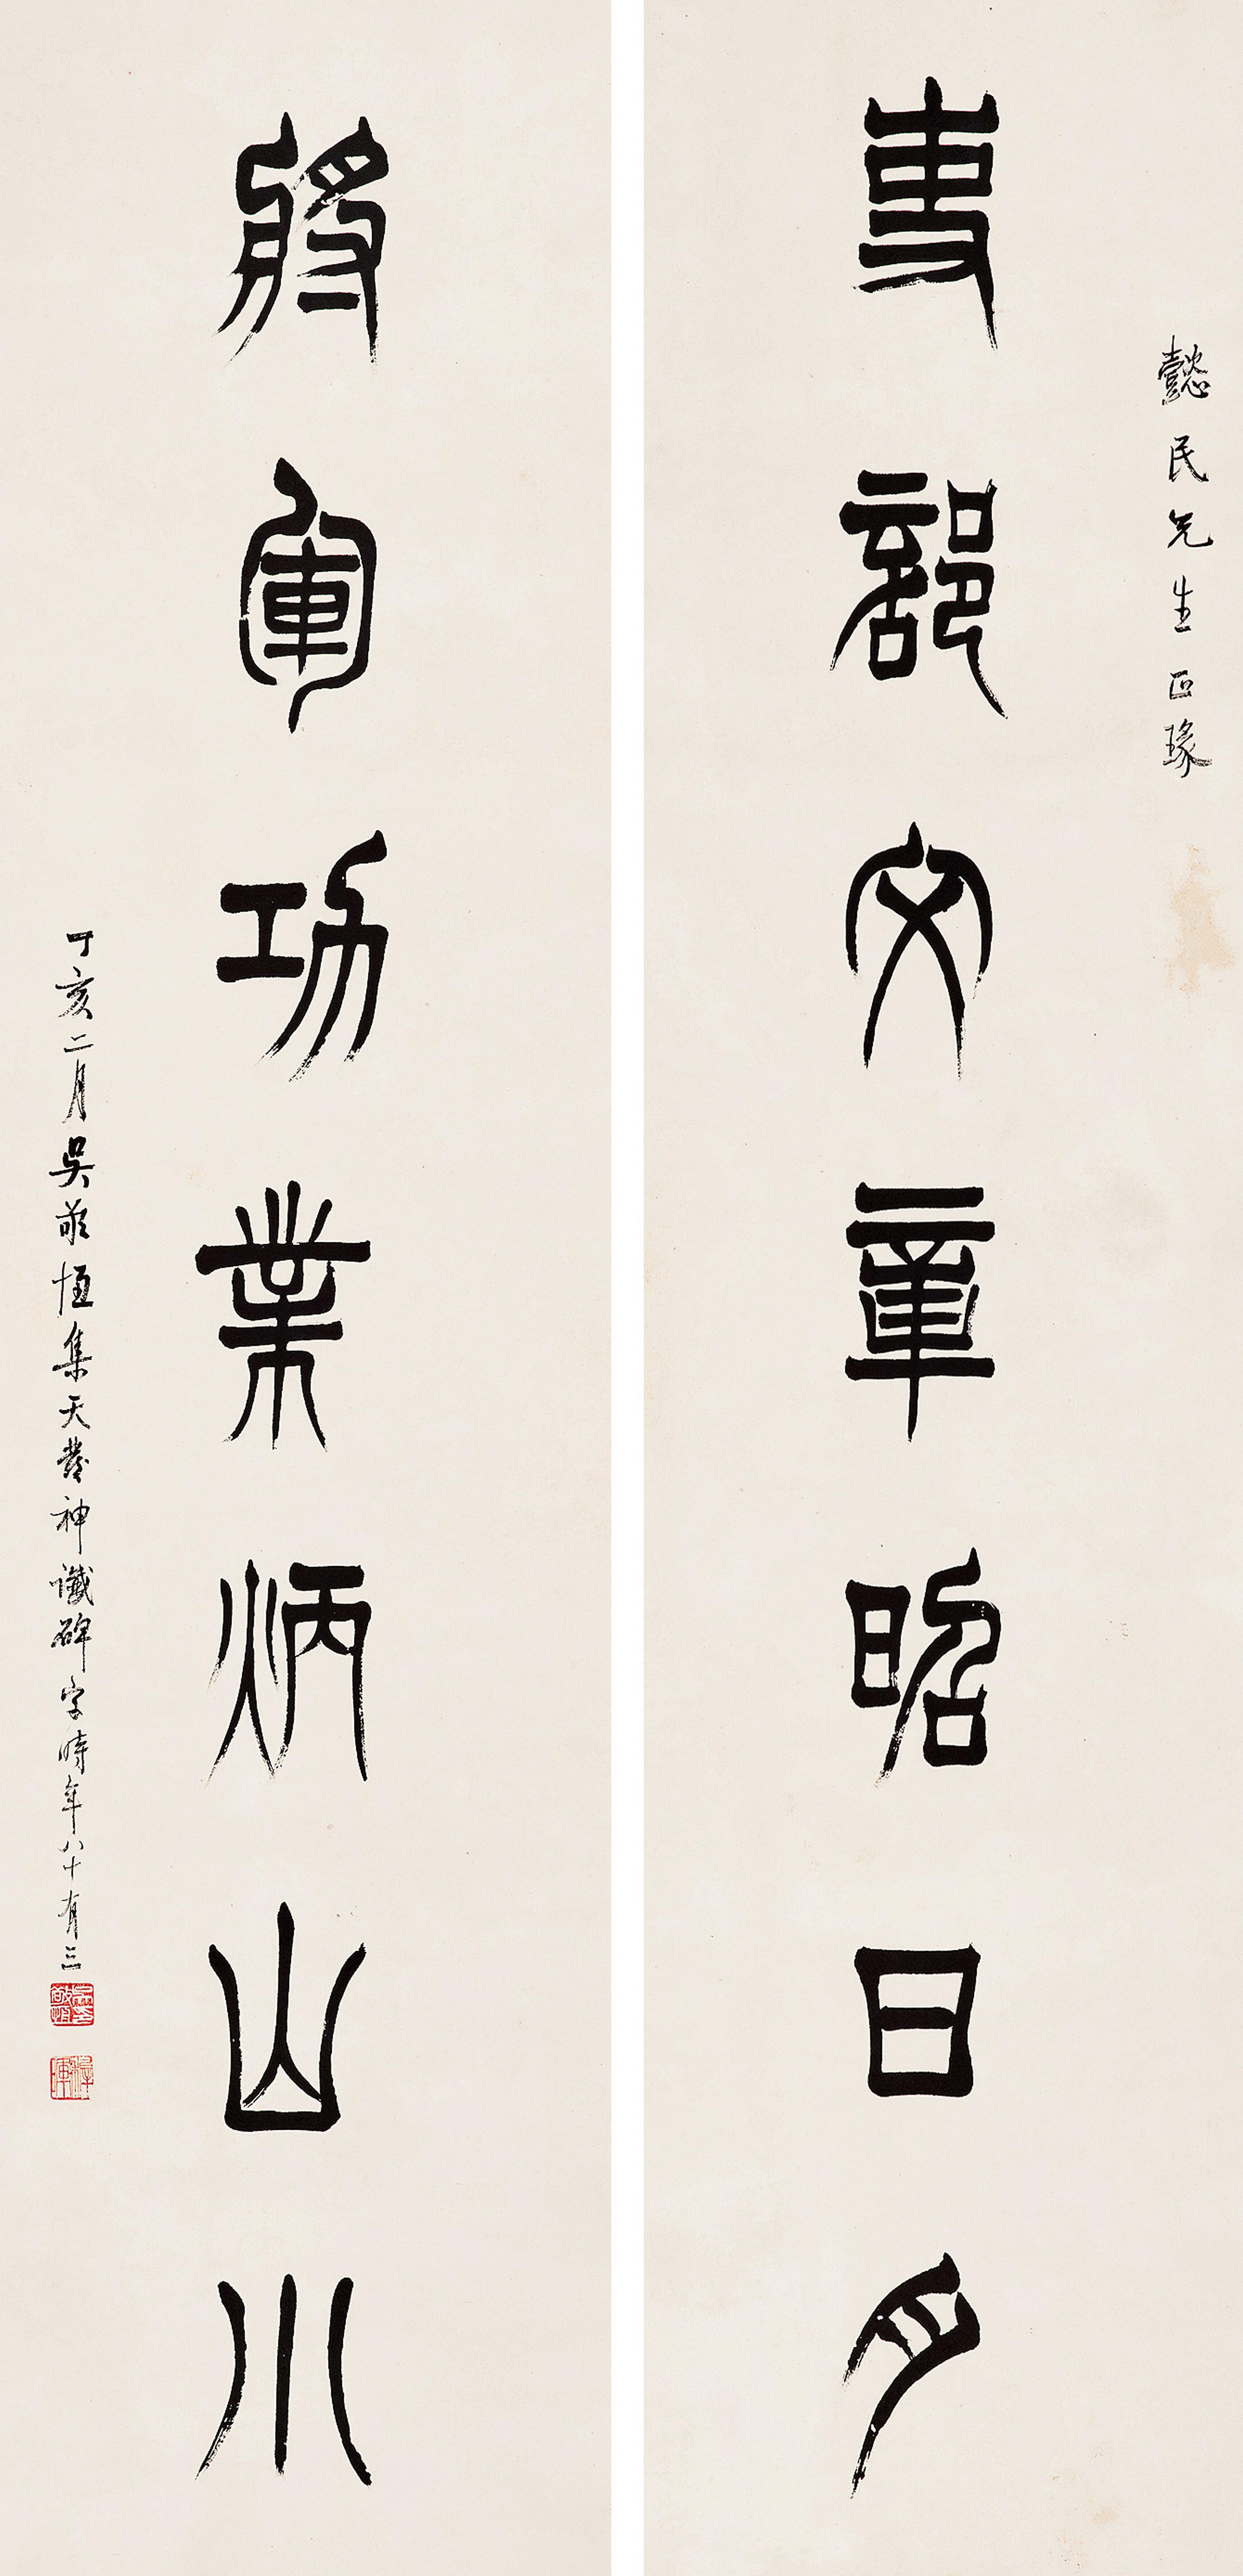 懿民先生正瑑
吏部文章昭日月
將軍功業炳山川
丁亥二月吳敬恆集天發神讖碑字時年八十有三
稚暉